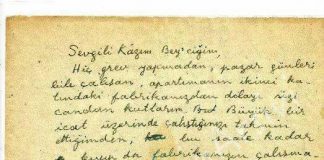 Sevgili Kâzım Bey'ciğim,
Hiç grev yapmadan, pazar günleri
bile çalışan, apartımanın ikinci ka-
tındaki fabrikanızdan dolayı sizi
candan kutlarım. Büyük bir
icat üzerinde çalıştığınızı tahmin
ettiğimden, bu saate kadar
fabrikanızın çalışma-